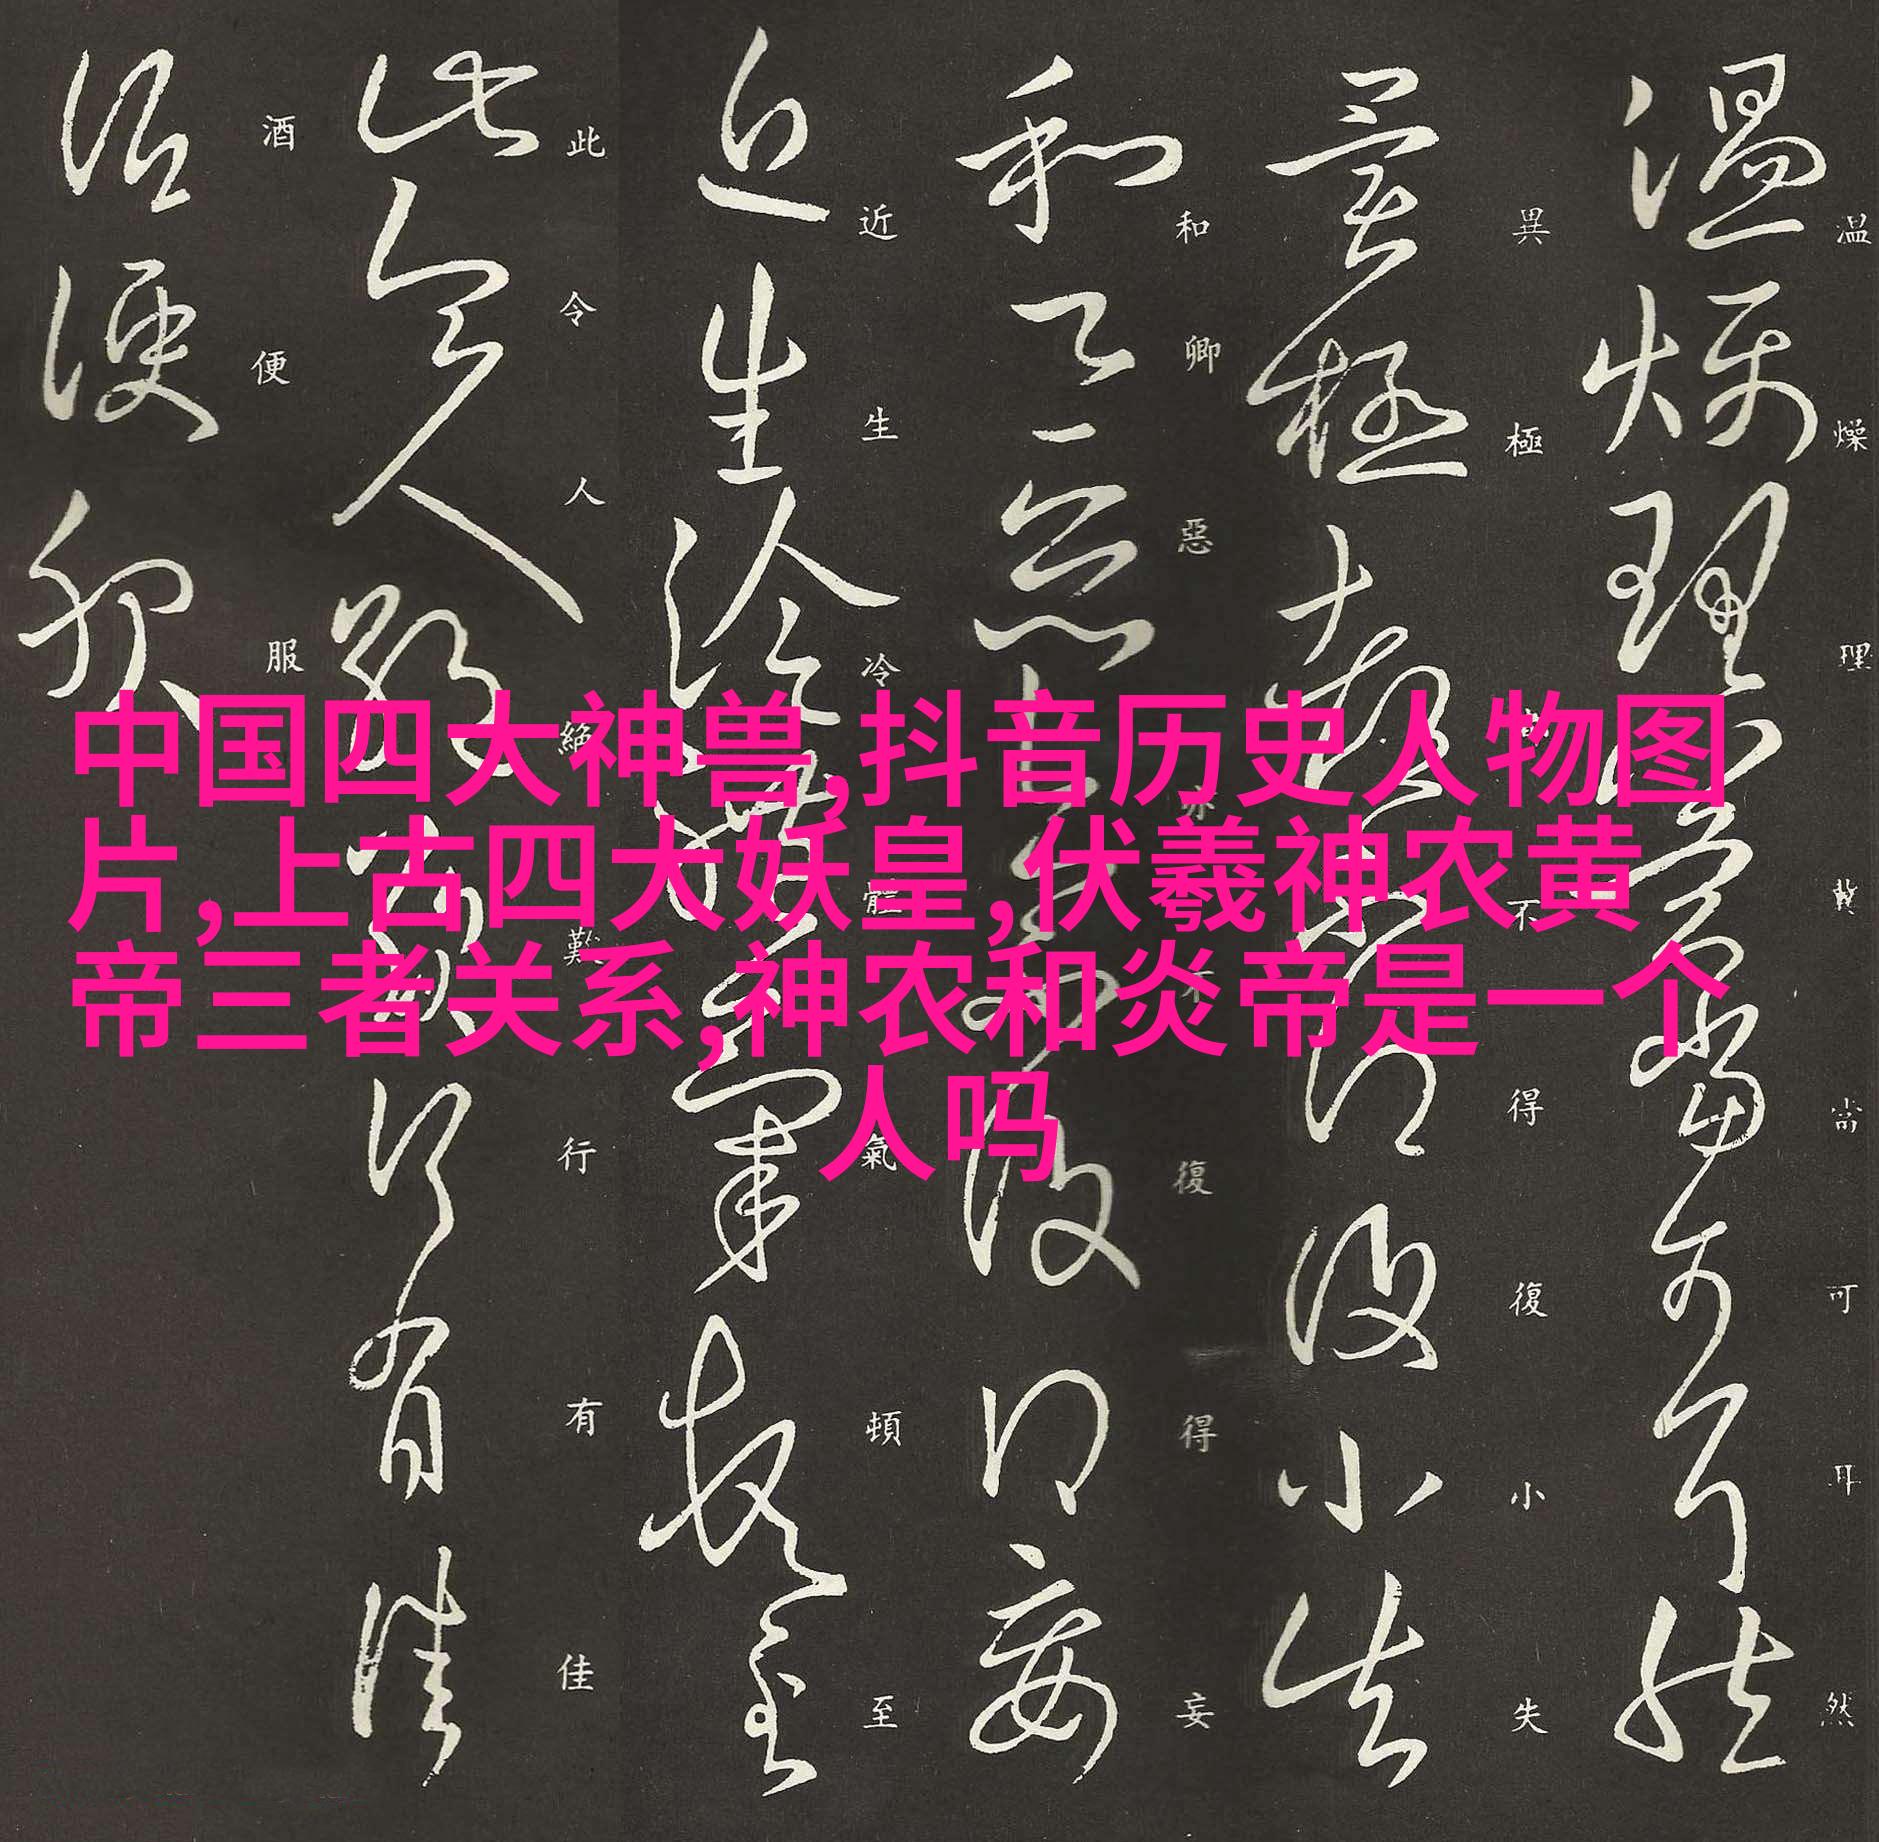 中国四大神兽,抖音历史人物图
片,上古四大妖皇,伏羲神农黄
帝三者关系,神农和炎帝是一个
人吗
温燥理冀當可耳然
異極不得復小失
和卿惡亦不復得妄
近生冷體氣頓至
此令人絶難行有佳
酒便服